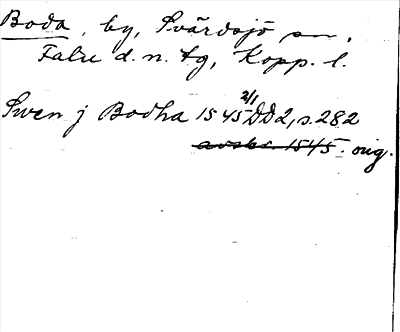 Boda, by, Svärdsjö sn,
Falu d.n. tg, Kopp. l.
Swen j Bodha 1545 2/1 DD2, s. 282
avskr. 1545. orig.